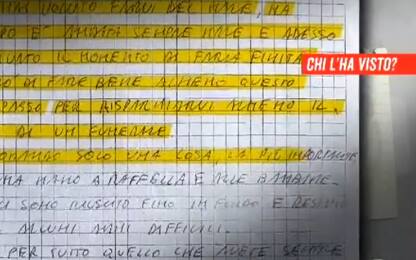 VOLUTO FARVI DEL MALE, HA
SEMPRE MALE E ADESSO
IL MOMENTO DI FARLA FINITA
DI FARE BENE ALMENO QUESTO
CHI L'HA VISTO?
PASSO PER RISPARMIARVI ALMENO IL
DI UN FUNERALE
SOLO UNA COSA, LA PIÙ IMPORTANTE
MANO A RAFFELLA E ALLE BAMBINE.
SONO RIUSCITO FINO IN FONDO E
ALCUNI ANNI DIFFICILI.
PER TUTTO QUELLO CHE AVETE SEMPRE